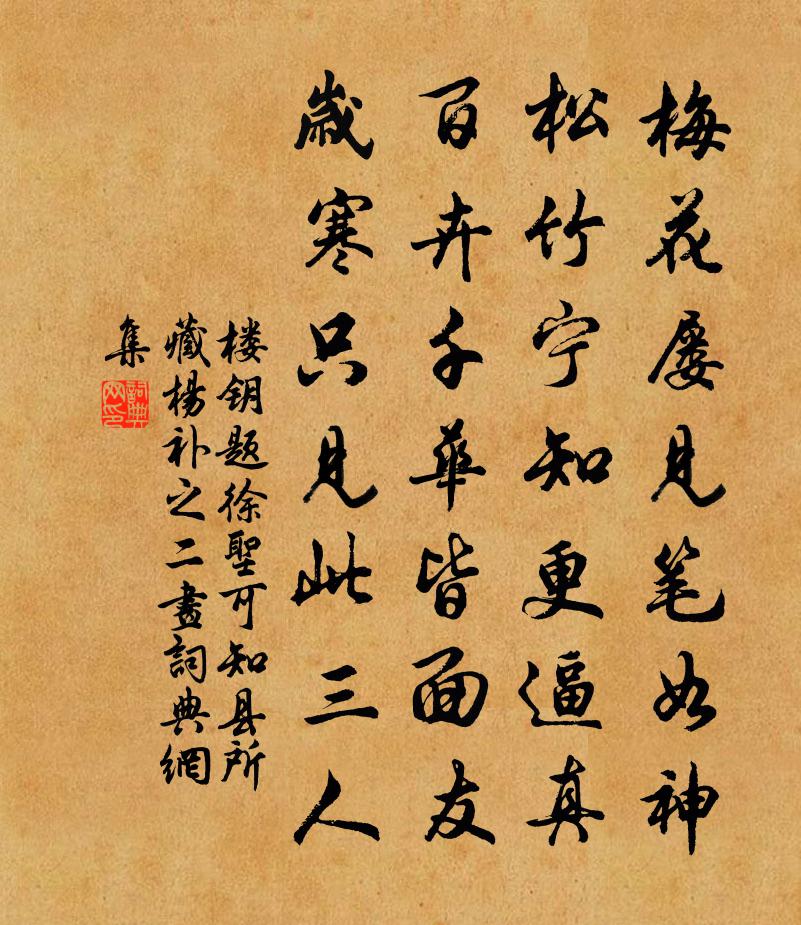 梅花屡见笔如神
松竹宁知更逼真
百卉千華皆面友
歳寒只见此三人
楼钥题徐聖可知县所
藏楊补之二畫詞典網
集
詞典
网印